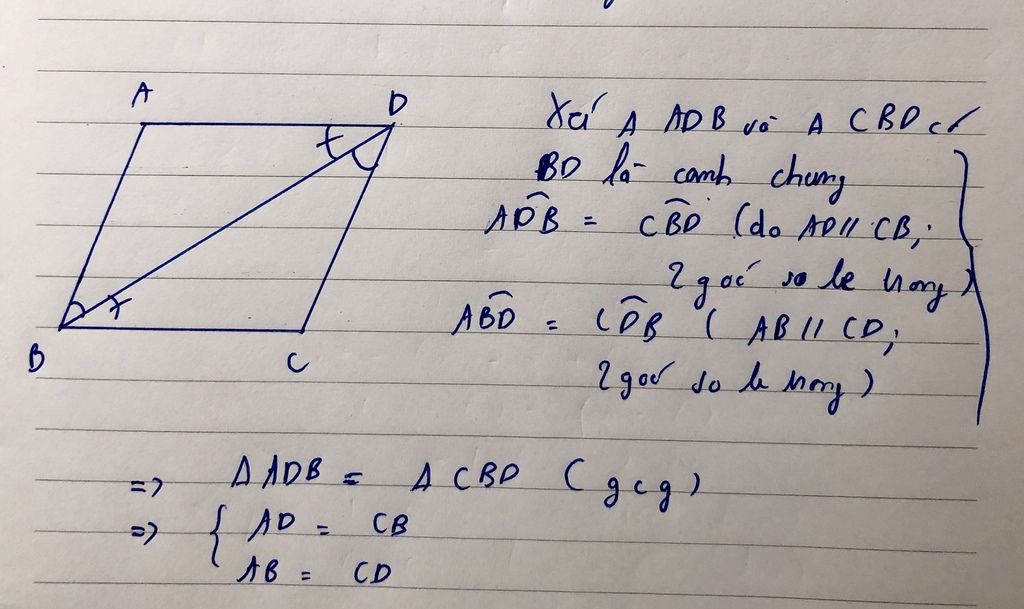 A
D
B
C
Xét Δ ADB và Δ CBD có
BD là cạnh chung
ADB̂ = CB̂D (do AD // CB;
2 góc so le trong)
AB̂D = CD̂B ( AB // CD;
2 góc so le trong)
=> Δ ADB = Δ CBD ( gcg )
=> { AD = CB
AB = CD